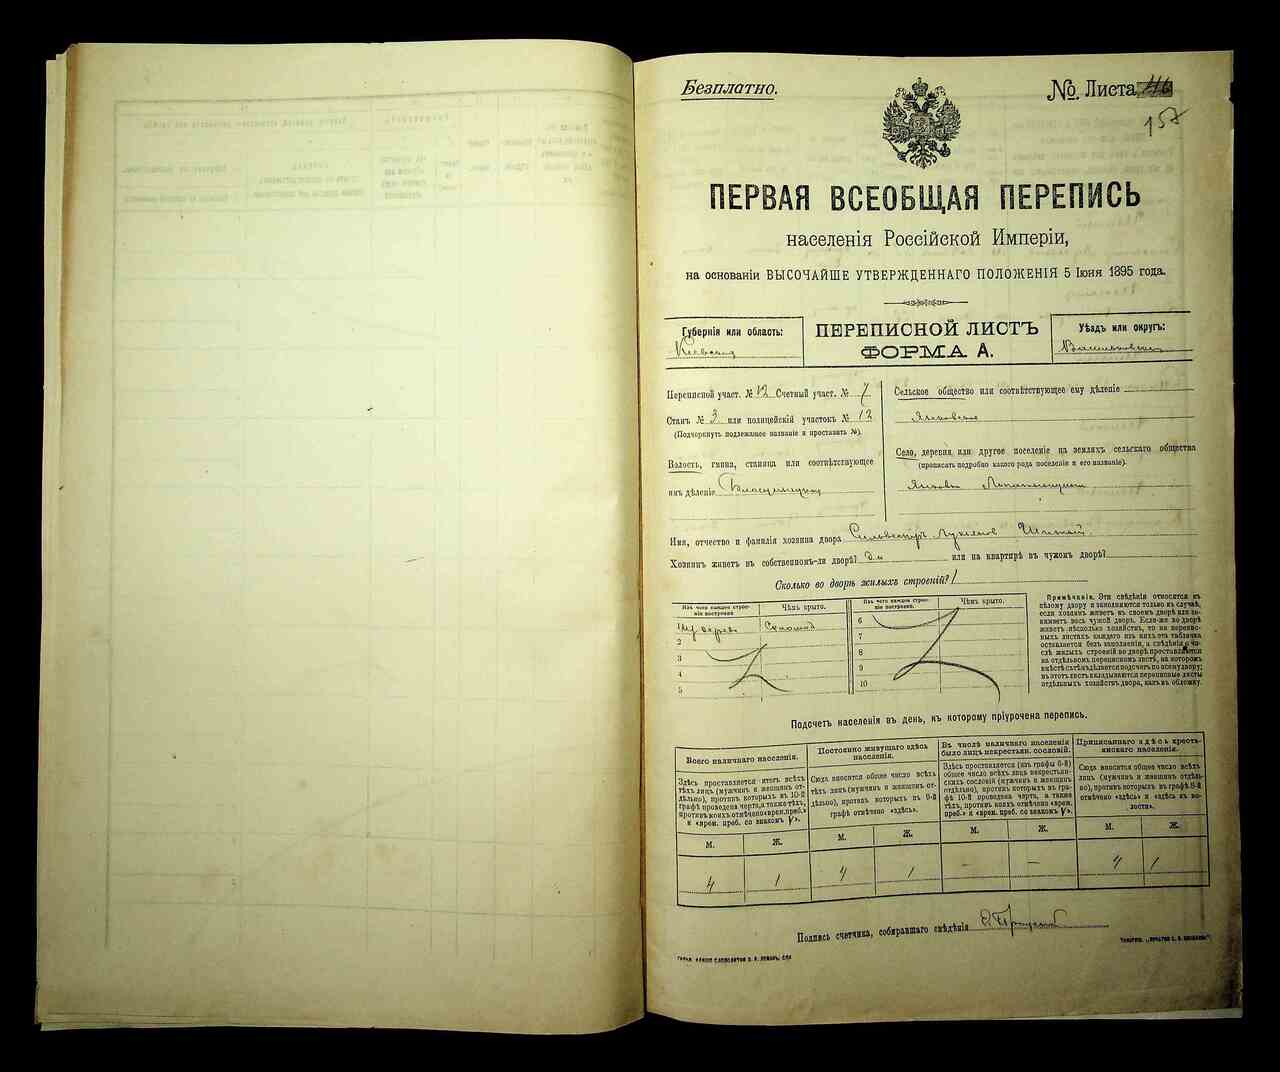 Безплатно.
№. Листа 46
157
ПЕРВАЯ ВСЕОБЩАЯ ПЕРЕПИСЬ
населенія Россійской Имперіи,
на основаніи ВЫСОЧАЙШЕ УТВЕРЖДЕННАГО ПОЛОЖЕНІЯ 5 Іюня 1895 года.
Губернія или область:
Кіевская
ПЕРЕПИСНОЙ ЛИСТЪ
ФОРМА А.
Уѣздъ или округъ:
Васильковскій
Переписной участ. № 12 Счетный участ. № 7
Станъ № 3 или полицейскій участокъ № 12
(Подчеркнуть подлежащее названіе и проставить №).
Волость, гмина, станица или соотвѣтствующее
имъ дѣленіе
Сельское общество или соотвѣтствующее ему дѣленіе
Янковское
Село, деревня, или другое поселеніе на земляхъ сельскаго общества
(прописать подробно какого рода поселеніе и его названіе).
Янковка
Имя, отчество и фамилія хозяина двора Сильвестръ
Хозяинъ живетъ въ собственномъ-ли дворѣ? да или на квартирѣ въ чужомъ дворѣ?
Сколько во дворѣ жилыхъ строеній? 1
Изъ чего каждое строе-
ніе построено
Чѣмъ крыто.
Изъ чего каждое строе-
ніе построено.
Чѣмъ крыто.
Изъ дерева Соломой
2
3
4
5
6
7
8
9
10
Примѣчаніе. Эти свѣдѣнія относятся къ
цѣлому двору и заполняются только въ случаѣ,
если хозяинъ живетъ въ своемъ дворѣ или за-
нимаетъ весь чужой дворъ. Если-же во дворѣ
живетъ нѣсколько хозяйствъ, то на перепис-
ныхъ листахъ каждаго изъ нихъ эта табличка
оставляется безъ заполненія, а свѣдѣнія о чи-
слѣ жилыхъ строеній во дворѣ проставляются
на отдѣльномъ переписномъ листѣ, на которомъ
вмѣстѣ съ тѣмъ дѣлается подсчетъ по всему двору;
въ этотъ листъ вкладываются переписные листы
отдѣльныхъ хозяйствъ двора, какъ въ обложку.
Подсчетъ населенія въ день, къ которому пріурочена перепись.
Всего наличнаго населенія.
Здѣсь проставляется итогъ всѣхъ
тѣхъ лицъ (мужчинъ и женщинъ от-
дѣльно), противъ которыхъ въ 10-й
графѣ проведена черта, а также тѣхъ,
противъ коихъ отмѣчено «врем. преб.»
и «врем. преб. со знакомъ V».
Постоянно живущаго здѣсь
населенія.
Сюда вносится общее число всѣхъ
тѣхъ лицъ (мужчинъ и женщинъ от-
дѣльно), противъ которыхъ въ 9-й
графѣ отмѣчено «здѣсь».
Въ числѣ наличнаго населенія
было лицъ некрестьян. сословій.
Здѣсь проставляется (изъ графы 6-й)
общее число всѣхъ лицъ некрестьян-
скихъ сословій (мужчинъ и женщинъ
отдѣльно), противъ которыхъ въ гра-
фѣ 10-й проведена черта, а также
тѣхъ, противъ коихъ отмѣчено «врем.
преб.» и «врем. преб. со знакомъ V».
Приписаннаго здѣсь кресть-
янскаго населенія.
Сюда вносится общее число всѣхъ
лицъ (мужчинъ и женщинъ отдѣль-
но), противъ которыхъ въ графѣ 8-й
отмѣчено «здѣсь» и «здѣсь въ во-
лости».
М. Ж. М. Ж. М. Ж. М. Ж.
4 1 4 1 – – 4 1
Подпись счетчика, собиравшаго свѣдѣнія